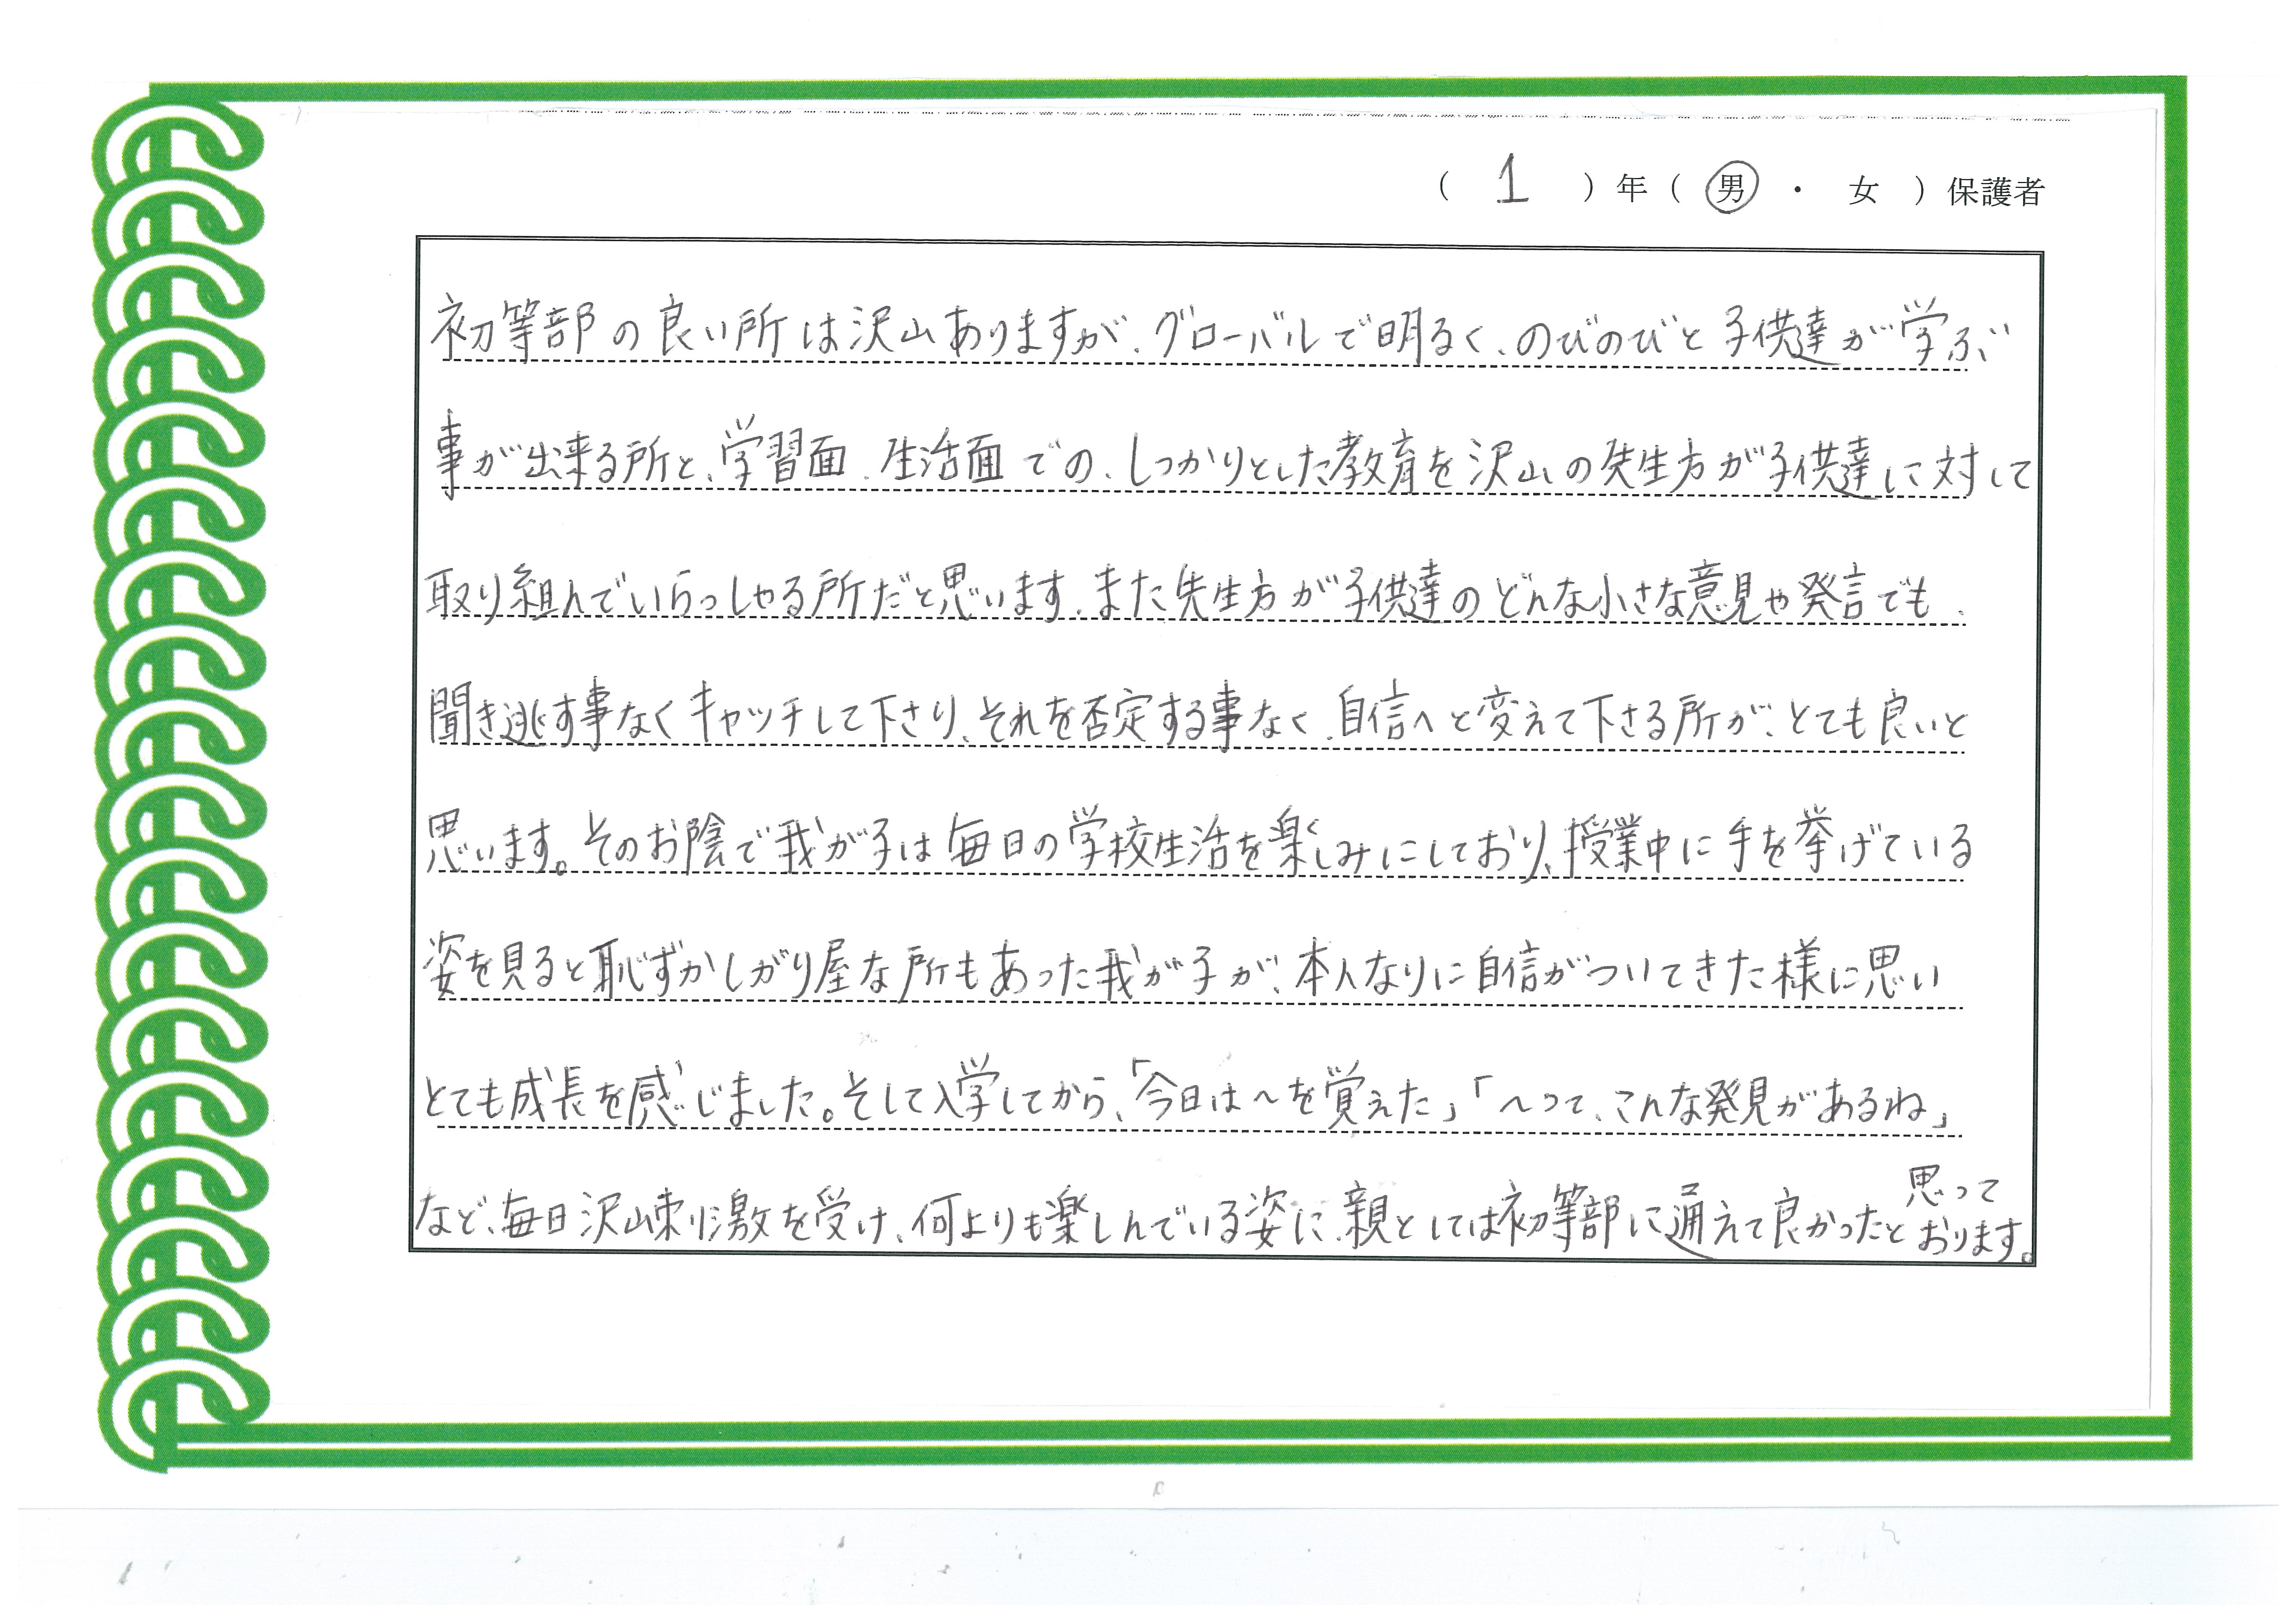 （ 1 ）年（ 男 ・ 女 ）保護者
初等部の良い所は沢山ありますが、グローバルで明るく、のびのびと子供達が学ぶ
事が出来る所と、学習面、生活面での、しっかりとした教育を沢山の先生方が子供達に対して
取り組んでいらっしゃる所だと思います。また先生方が子供達のどんな小さな意見や発言でも、
聞き逃す事なくキャッチして下さり、それを否定する事なく、自信へと変えて下さる所が、とても良いと
思います。そのお陰で我が子は毎日の学校生活を楽しみにしており、授業中に手を挙げている
姿を見ると恥ずかしがり屋な所もあった我が子が、本人なりに自信がついてきた様に思い
とても成長を感じました。そして入学してから、「今日は～を覚えた」「～って、こんな発見があるね」
など、毎日沢山刺激を受け、何よりも楽しんでいる姿に、親としては初等部に通えて良かったと思って
おります。